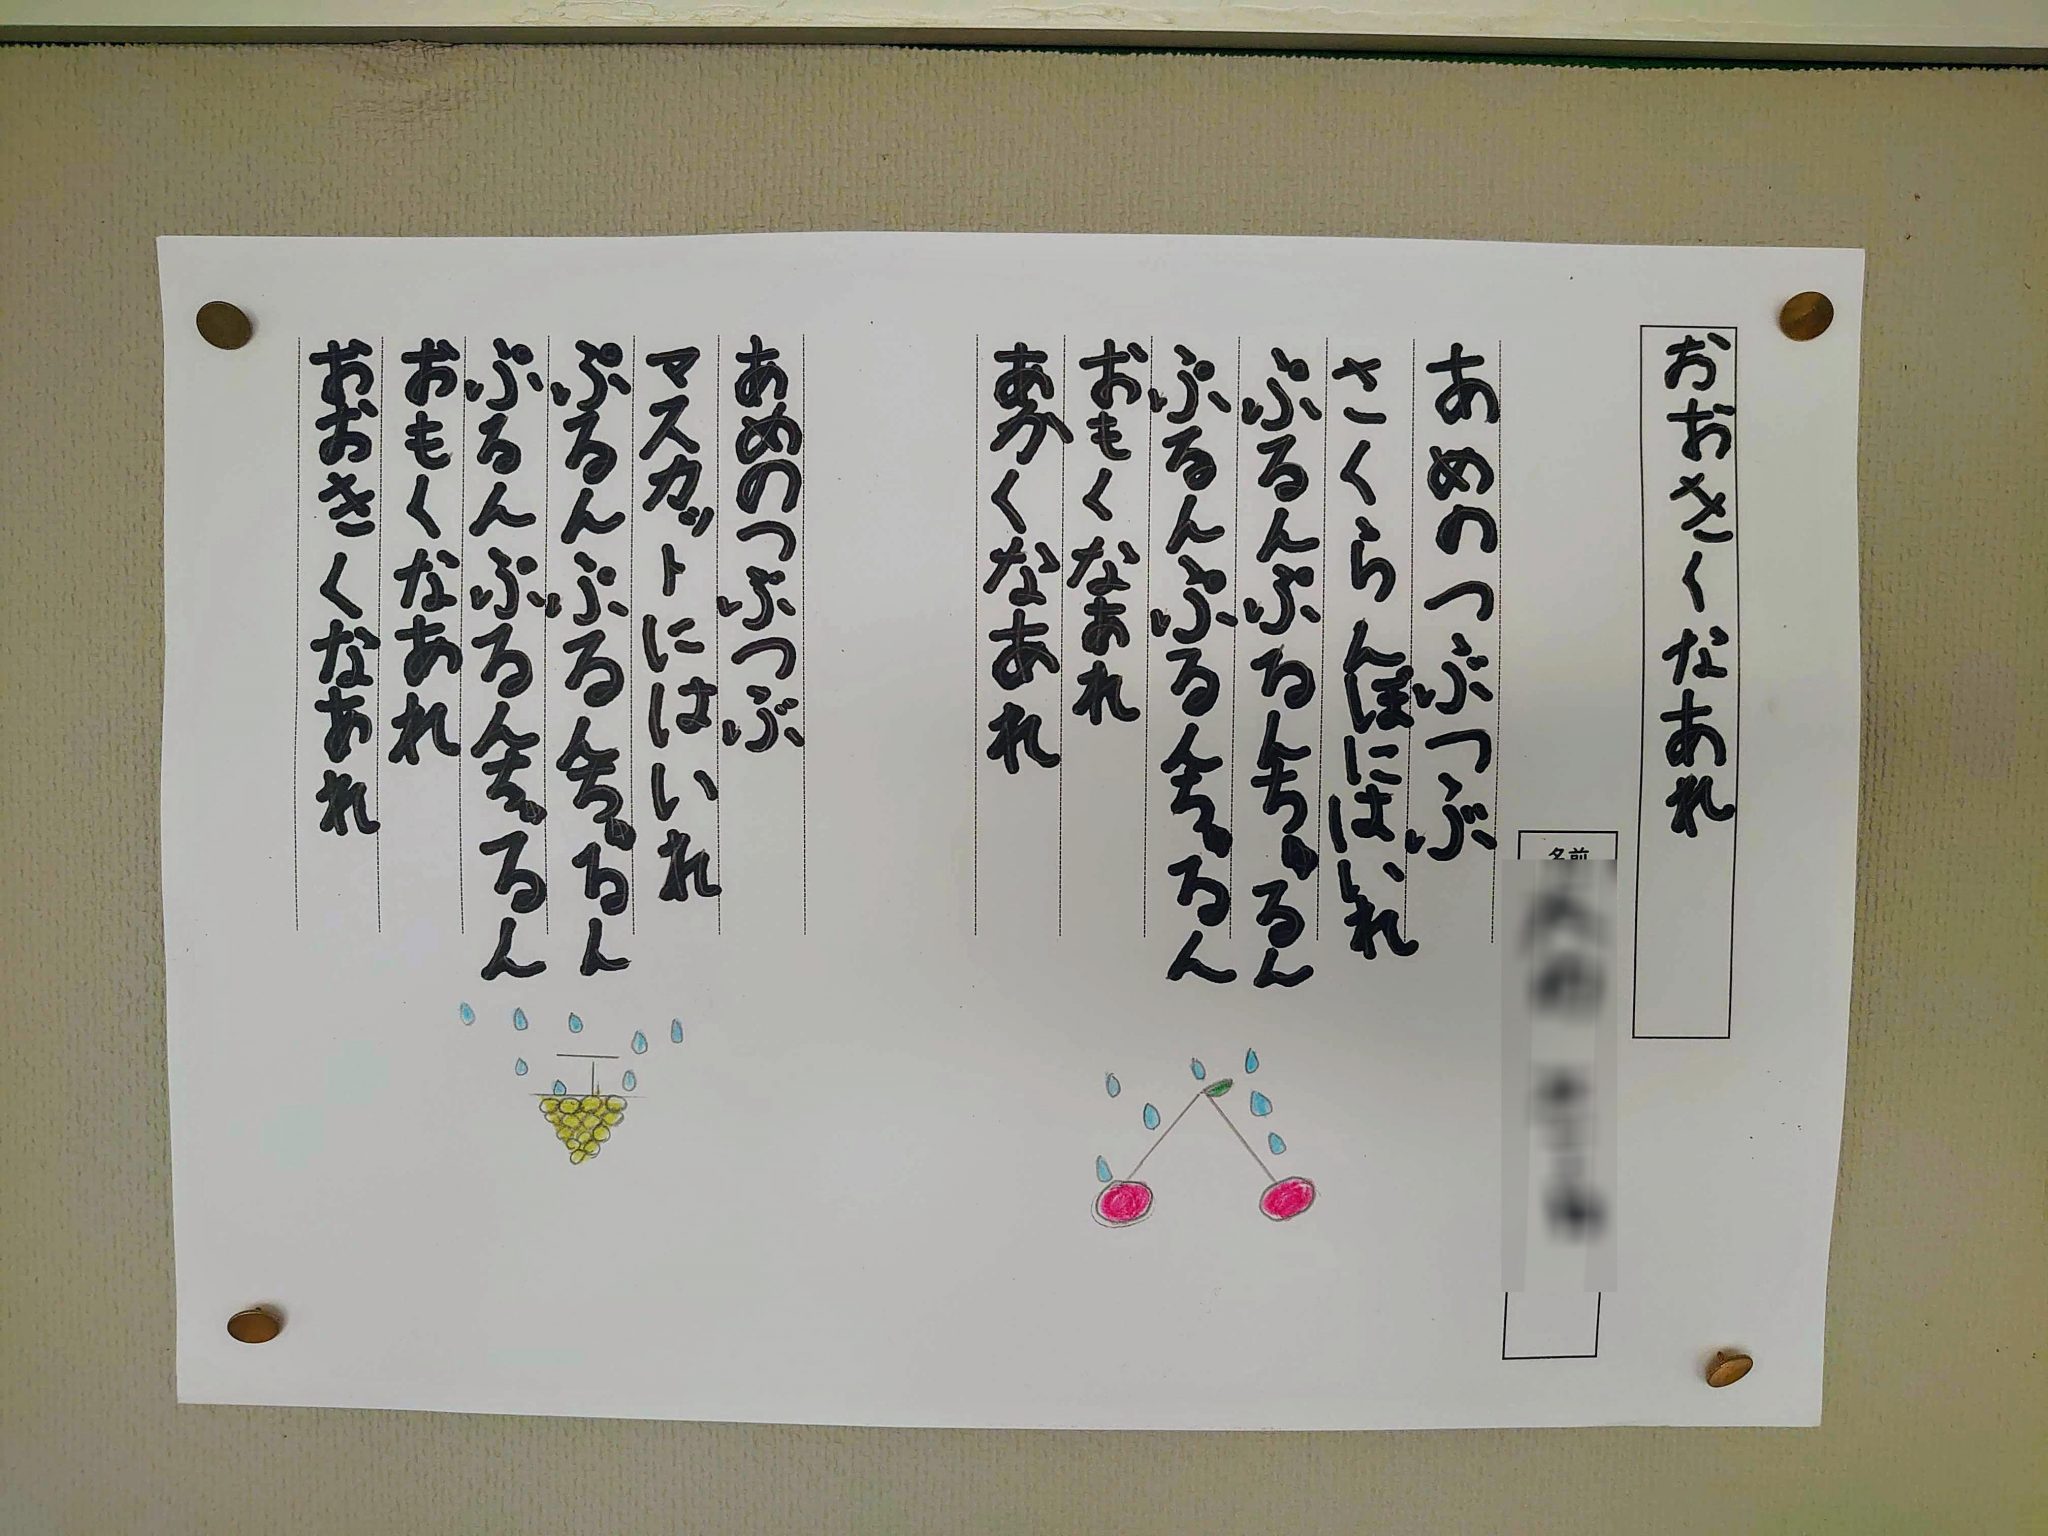 おおきくなあれ
名前
あめのつぶつぶ
さくらんぼにはいれ
ぷるんぷるんちゃるん
ぷるんぷるんちゃるん
おもくなあれ
あかくなあれ
あめのつぶつぶ
マスカットにはいれ
ぷるんぷるんちゃるん
ぷるんぷるんちゃるん
おもくなあれ
おおきくなあれ